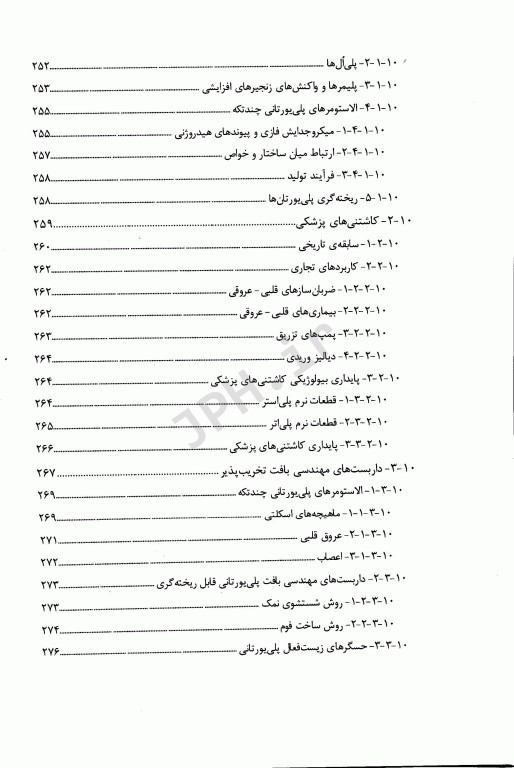 ۱۰-۱-۲- پلی‌اُل‌ها ........ ۲۵۲
۱۰-۱-۳- پلیمرها و واکنش‌های زنجیرهای افزایشی ........ ۲۵۳
۱۰-۱-۴- الاستومرهای پلی‌یورتانی چندتکه ........ ۲۵۵
۱۰-۱-۴-۱- میکروجدایش فازی و پیوندهای هیدروژنی ........ ۲۵۵
۱۰-۱-۴-۲- ارتباط میان ساختار و خواص ........ ۲۵۷
۱۰-۱-۴-۳- فرآیند تولید ........ ۲۵۸
۱۰-۱-۵- ریخته‌گری پلی‌یورتان‌ها ........ ۲۵۸
۱۰-۲- کاشتنی‌های پزشکی ........ ۲۵۹
۱۰-۲-۱- سابقه‌ی تاریخی ........ ۲۶۰
۱۰-۲-۲- کاربردهای تجاری ........ ۲۶۲
۱۰-۲-۲-۱- ضربان‌سازهای قلبی - عروقی ........ ۲۶۲
۱۰-۲-۲-۲- بیماری‌های قلبی - عروقی ........ ۲۶۲
۱۰-۲-۲-۳- پمپ‌های تزریق ........ ۲۶۳
۱۰-۲-۲-۴- دیالیز وریدی ........ ۲۶۴
۱۰-۲-۳- پایداری بیولوژیکی کاشتنی‌های پزشکی ........ ۲۶۴
۱۰-۲-۳-۱- قطعات نرم پلی‌استر ........ ۲۶۴
۱۰-۲-۳-۲- قطعات نرم پلی‌اتر ........ ۲۶۵
۱۰-۲-۳-۳- پایداری کاشتنی‌های پزشکی ........ ۲۶۶
۱۰-۳- داربست‌های مهندسی بافت تخریب‌پذیر ........ ۲۶۷
۱۰-۳-۱- الاستومرهای پلی‌یورتانی چندتکه ........ ۲۶۹
۱۰-۳-۱-۱- ماهیچه‌های اسکلتی ........ ۲۶۹
۱۰-۳-۱-۲- عروق قلبی ........ ۲۷۱
۱۰-۳-۱-۳- اعصاب ........ ۲۷۲
۱۰-۳-۲- داربست‌های مهندسی بافت پلی‌یورتانی قابل ریخته‌گری ........ ۲۷۳
۱۰-۳-۲-۱- روش شستشوی نمک ........ ۲۷۳
۱۰-۳-۲-۲- روش ساخت فوم ........ ۲۷۴
۱۰-۳-۳- حسگرهای زیست‌فعال پلی‌یورتانی ........ ۲۷۶
JPH.ir